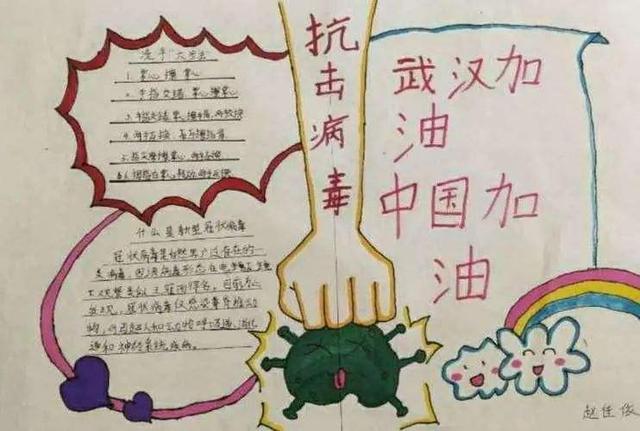 洗手"六步法"
1. 掌心擦掌心
2. 手指交错,掌心擦掌心
3. 手指交错,掌心擦手背,两手互换
4. 两手互握,互擦指背
5. 指尖摩擦掌心,两手互换
6. 拇指在掌心转动,两手互换
什么是新型冠状病毒
冠状病毒是自然界广泛存在的一
类病毒,因该病毒形态在电镜
下观察类似王冠而得名,目前为止
发现,冠状病毒仅感染脊椎动
物,可引起人和动物呼吸道,消化
道和神经系统疾病。
抗击病毒
武汉加
油
中国加
油
赵佳俊